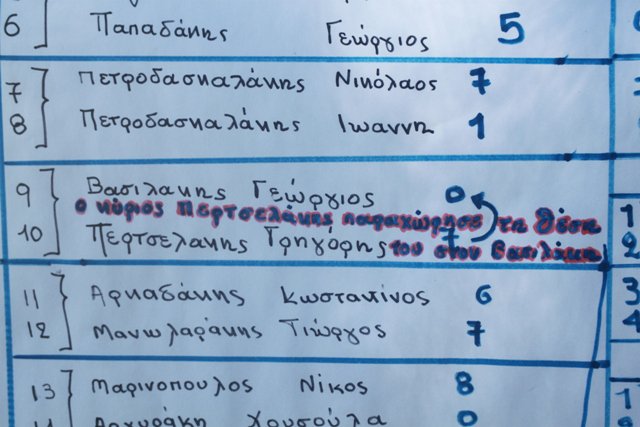 6 Παπαδάκης Γεώργιος 5
7 Πετροδασκαλάκης Νικόλαος 7
8 Πετροδασκαλάκης Ιωαννη 1
9 Βασιλακης Γεώργιος 0
ο κύριος Περτσελάκης παραχώρησε τη θέση 1
10 Περτσελακης Γρηγόρης 7 του στον Βασιλάκη 2
11 Αρκαδάκης Κωσταντίνος 6 3
12 Μανωλαράκης Γιώργος 7 4
13 Μαρινοπουλος Νίκος 8 1
Αργυράκη Χρυσούλα 0